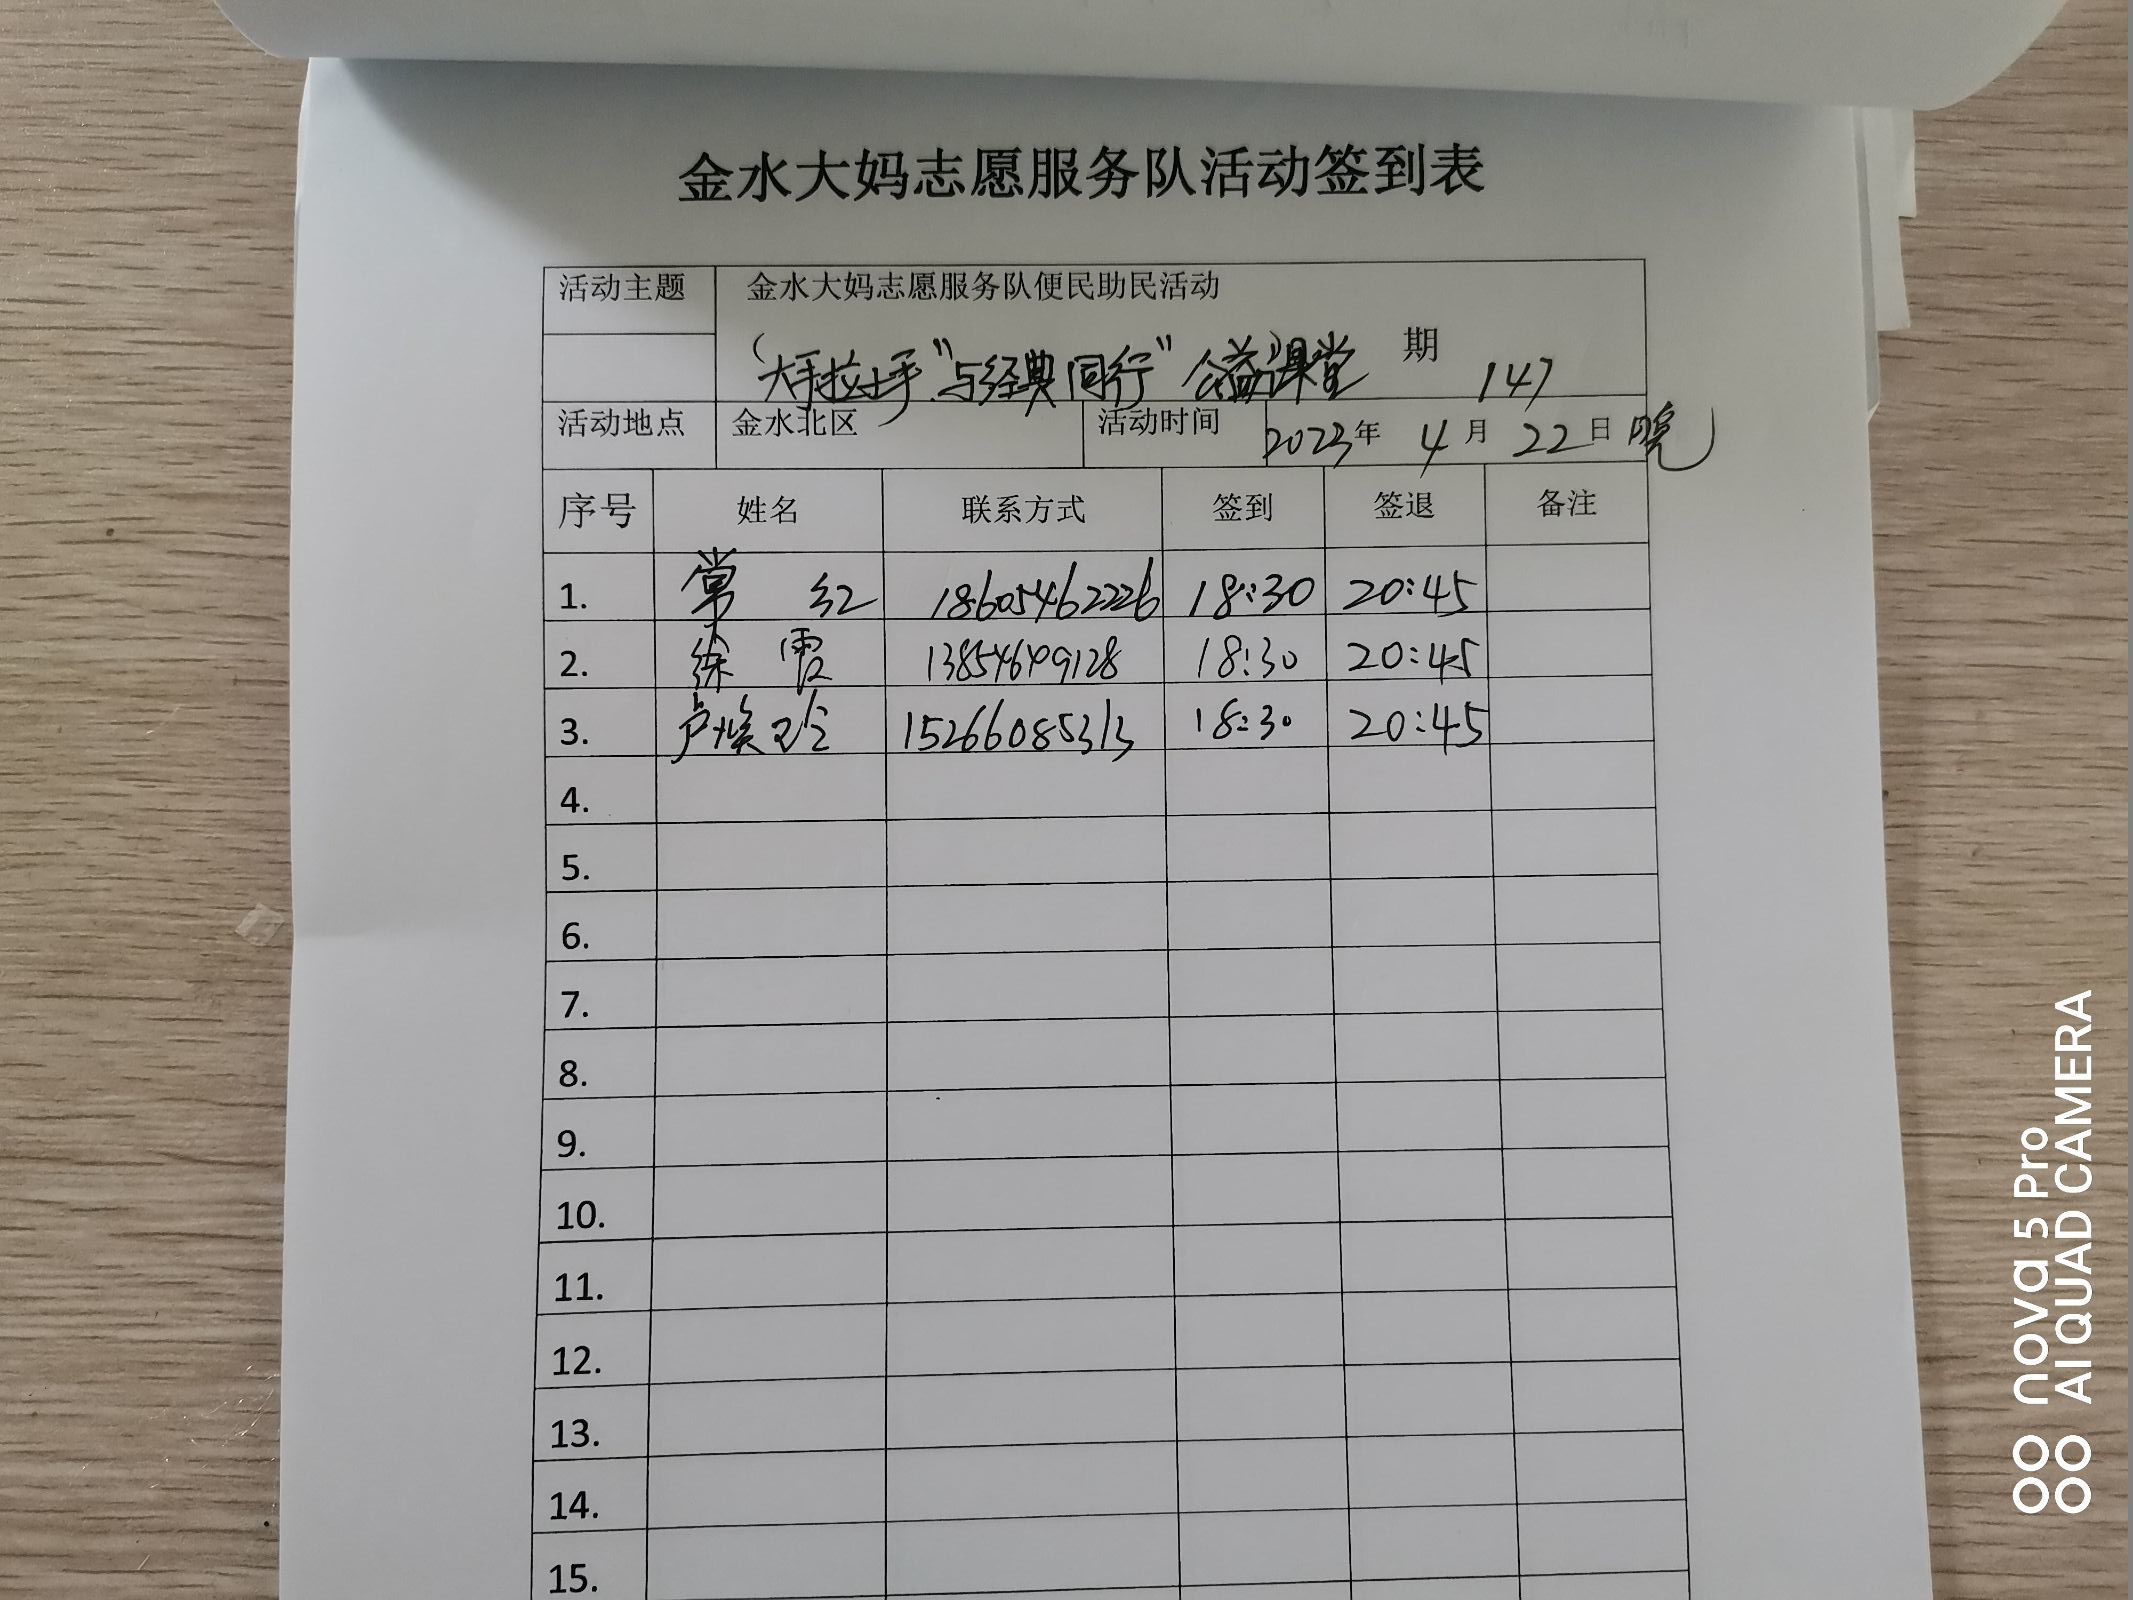 金水大妈志愿服务队活动签到表
活动主题 金水大妈志愿服务队便民助民活动
（大手拉小手“与经典同行”公益课堂 期 147
活动地点 金水北区 活动时间 2023年 4月 22日晚）
序号 姓名 联系方式 签到 签退 备注
1. 常红 18605462226 18:30 20:45
2. 徐霞 13854649128 18:30 20:45
3. 卢焕玲 15266085313 18:30 20:45
4.
5.
6.
7.
8.
9.
10.
11.
12.
13.
14.
15.
nova 5 Pro
AI QUAD CAMERA